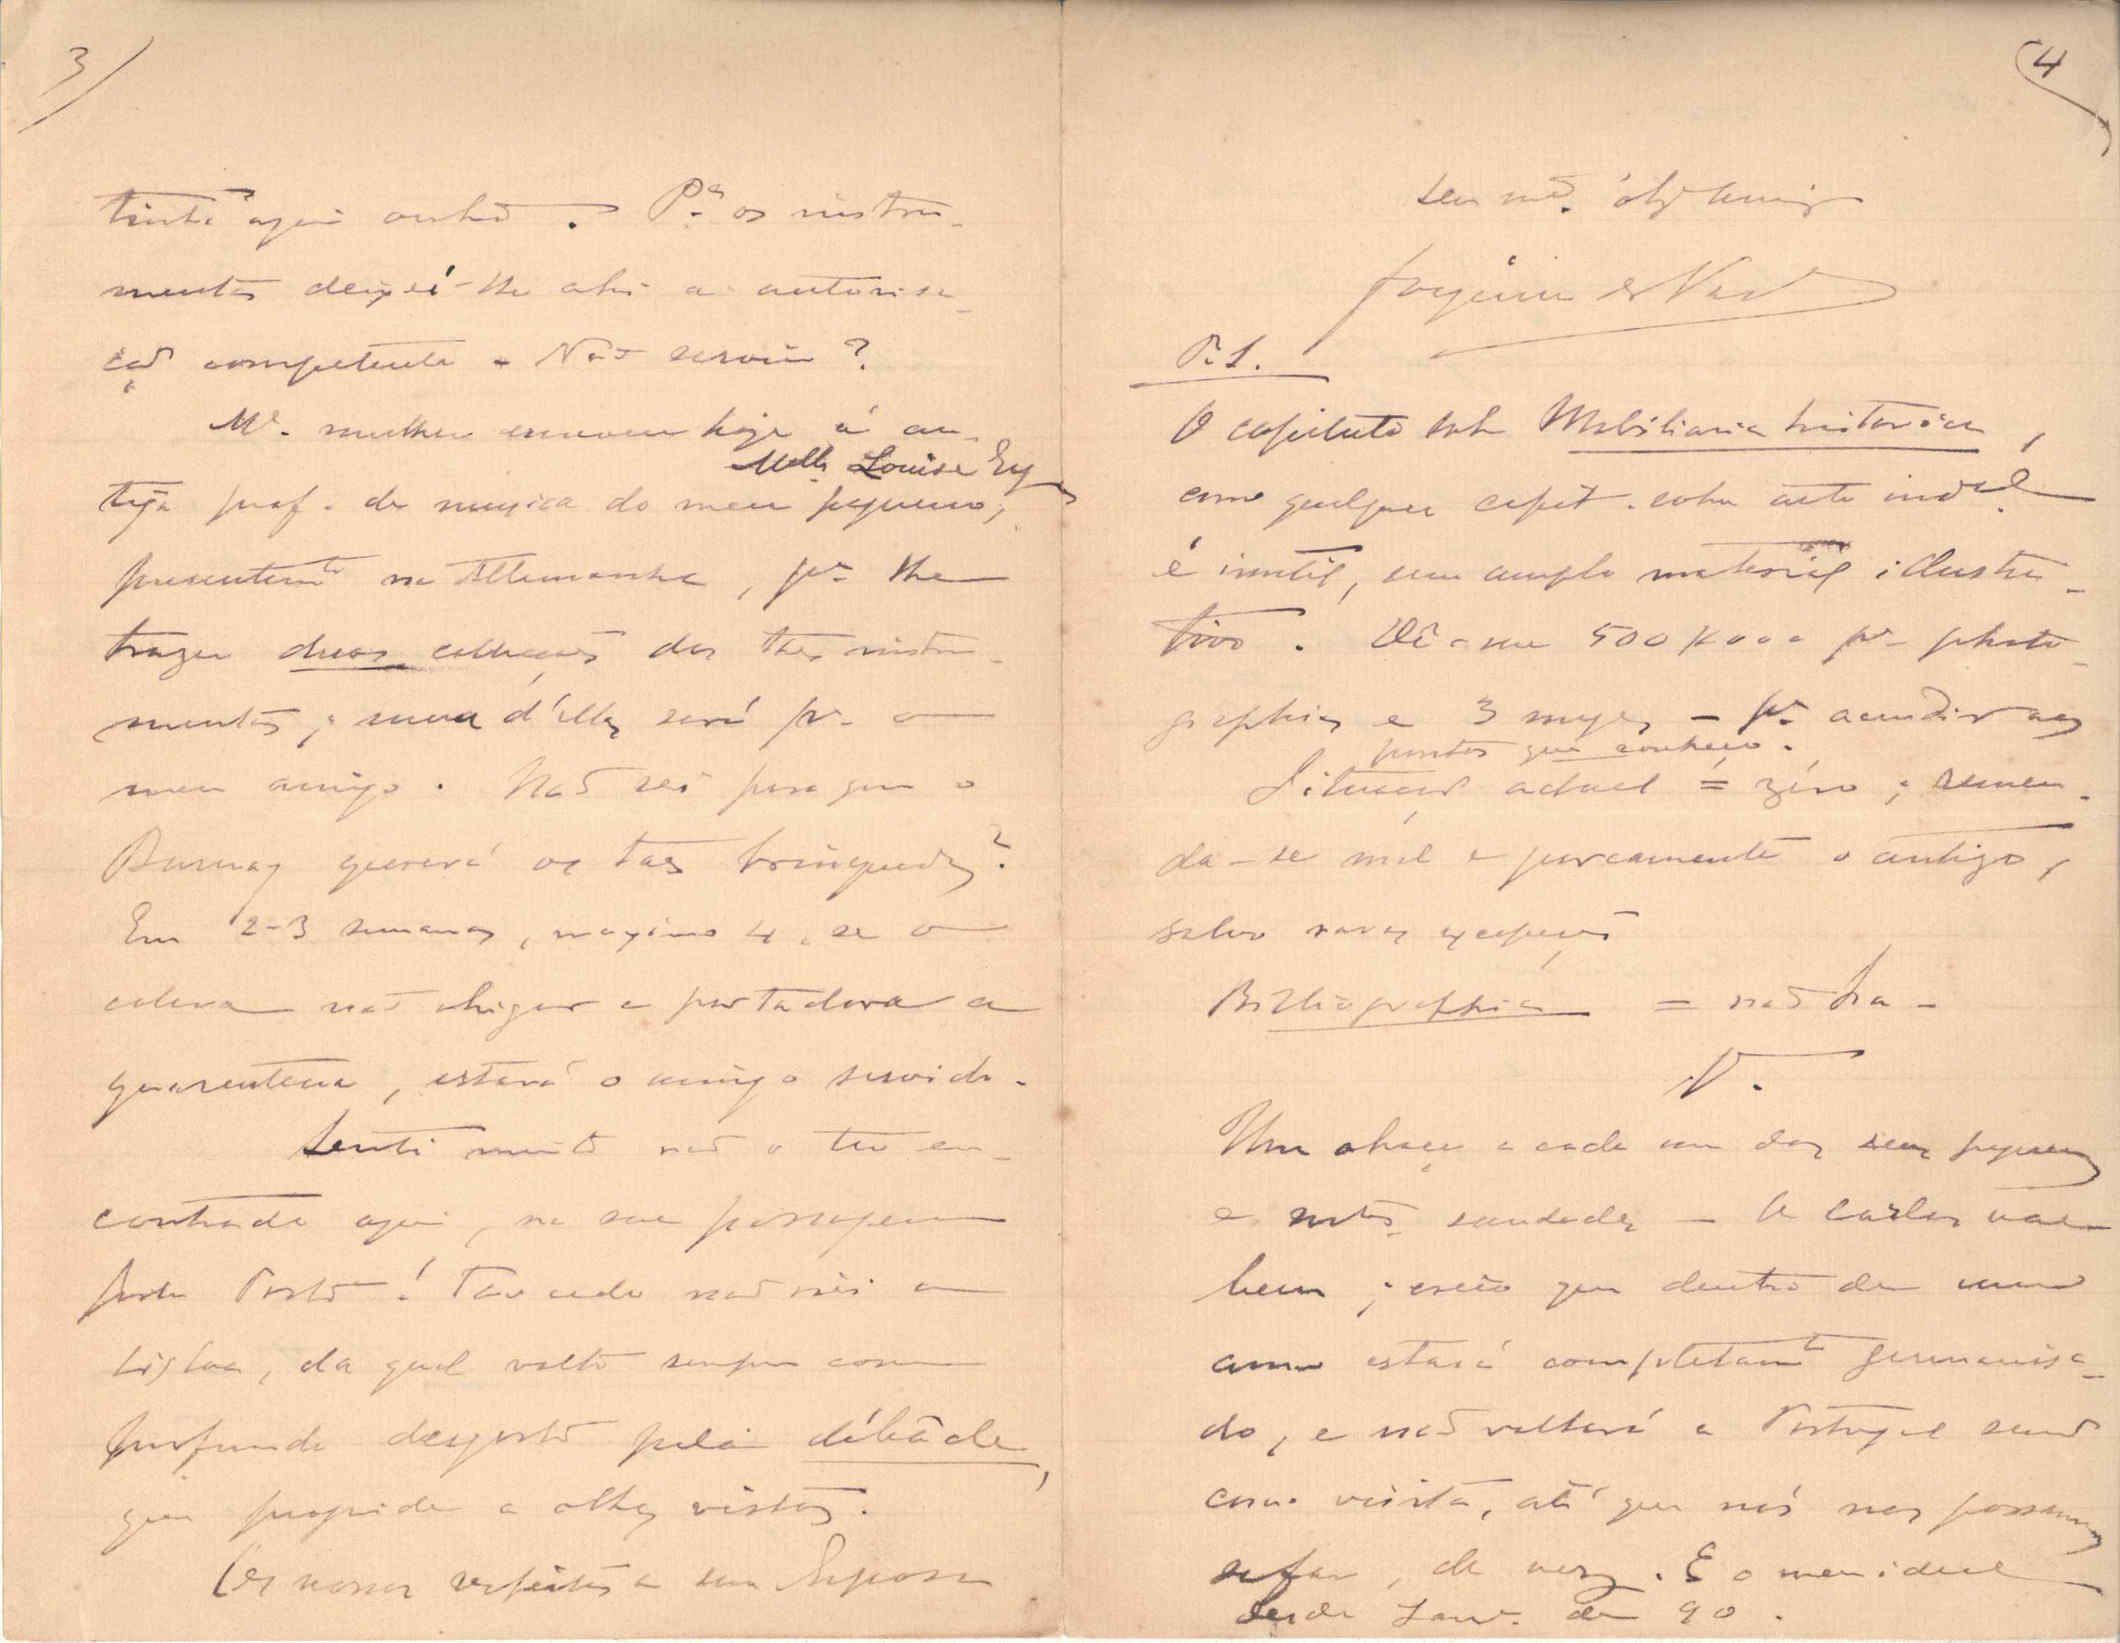 3
aqui . Pª os instru-
mentos deixei-lhe ahi a autorisa-
ção competente - Não serviu?
Mª. mulher escreveu hoje á an-
Melle Louise Ey
tiga prof. de musica do meu pequeno,
presentemte na Allemanha, pª lhe
trazer duas collecções dos taes instru-
mentos; uma d'ellas será pª o
meu amigo. Não sei para que o
Burnay quererá os taes brinquedos?
Em 2-3 semanas, maximo 4, se o
colera não obrigar a portadora a
quarentena, estará o amigo servido.
Senti muito não o ter en-
contrado aqui, na sua passagem
pelo Porto! Tão cedo não irei a
Lisboa, da qual volto sempre com
profundo desgosto pela débâcle,
que progride a olhos vistos.
Os nossos respeitos a sua Esposa
4
seu mto. obg amigo
Joaquim de Vasc
P.S.
O capitulo sobre Mobiliario historico,
como qualquer capit. sobre arte indal
é inutil, sem amplo material illustra-
tivo. Dê-me 500$000 pª photo-
graphias e 3 mezes - pª acudir aos
pontos que conheço.
Situação actual = zéro; remen-
da-se mal e porcamente o antigo,
salvo raras excepções
Bibliographia = não ha -
V.
Um abraço a cada um dos seus pequenos
e mtas saudades - O Carlos vae
bem; creio que dentro de um
anno estará completamte germanisa-
do, e não voltará a Portugal senão
como visita, até que nós nos possamos
safar, de vez. É o meu ideal
desde Janr. de 90.